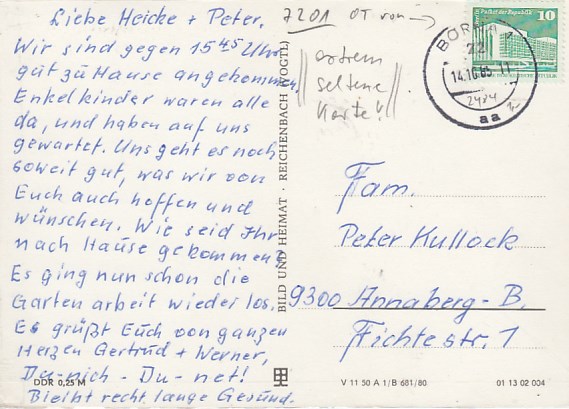 Liebe Heicke + Peter,
Wir sind gegen 15⁴⁵ Uhr
gut zu Hause angekommen.
Enkelkinder waren alle
da, und haben auf uns
gewartet. Uns geht es noch
soweit gut, was wir von
Euch auch hoffen und
wünschen. Wie seid Ihr
nach Hause gekommen?
Es ging nun schon die
Gartenarbeit wieder los.
Es grüßt Euch von ganzen
Herzen Gertrud + Werner,
Du-nich - Du-net!
Bleibt recht lange Gesund.
DDR 0,25 M
BILD UND HEIMAT · REICHENBACH (VOGTL)
7201 OT von →
extrem
seltene
Karte!!
22
aa
Palast der Republik 10
Fam.
Peter Kullock
9300 Annaberg-B.
Fichtestr. 1
V 11 50 A 1/B 681/80
01 13 02 004